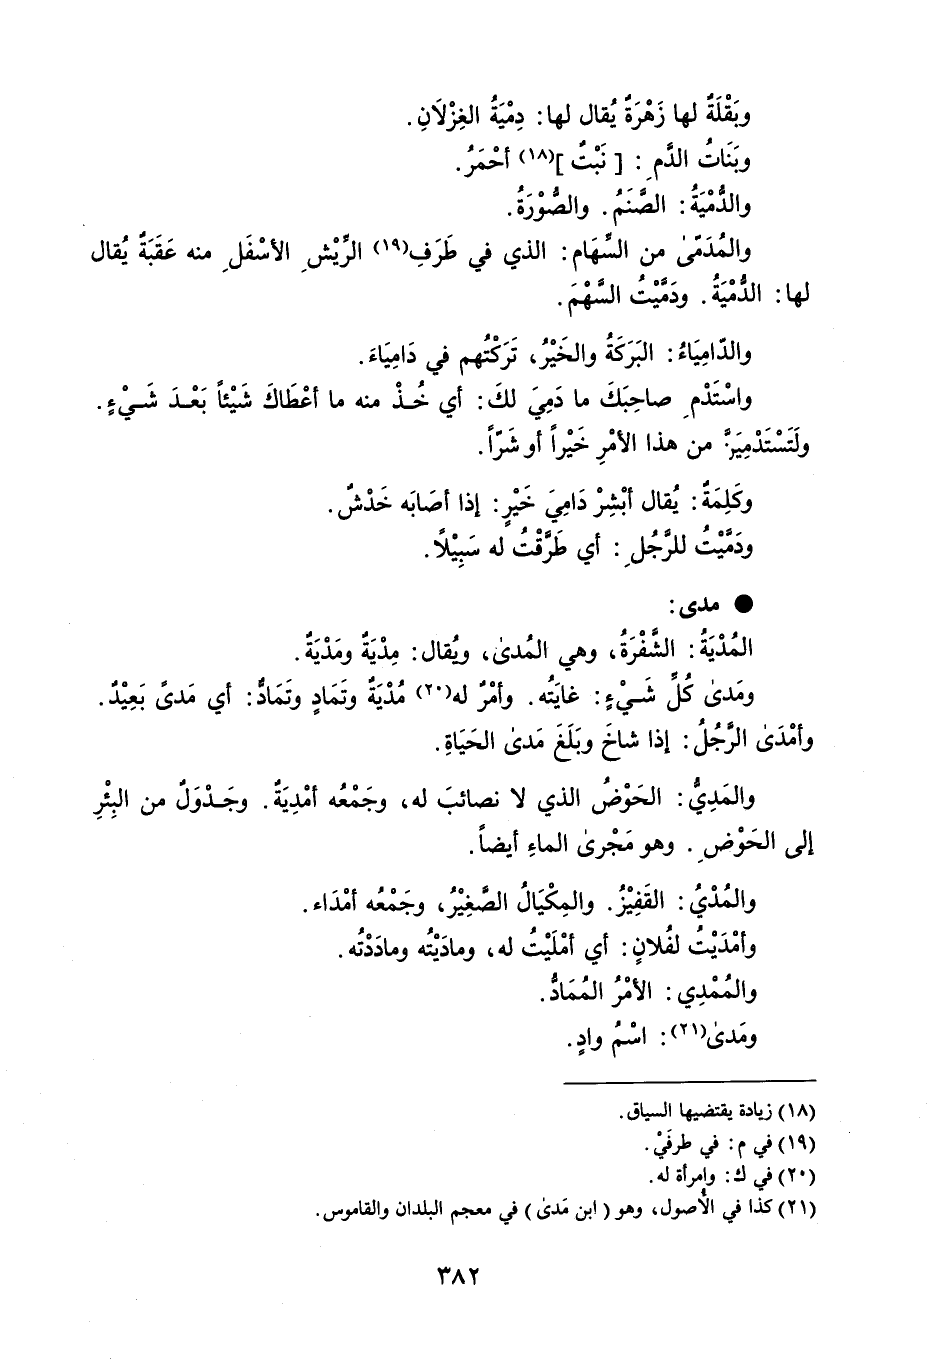 وبَقْلَةٌ لها زَهْرَةٌ يُقال لها: دِمْيَةُ الغِزْلَانِ.
وبَنَاتُ الدَّمِ: [ نَبْتٌ ](١٨) أحْمَرُ.
والدُّمْيَةُ: الصَّنَمُ. والصُّوْرَةُ.
والمُدَمّىٰ من السِّهَام: الذي في طَرَفِ(١٩) الرِّيْشِ الأسْفَلِ منه عَقَبَةٌ يُقال
لها: الدُّمْيَةُ. ودَمَّيْتُ السَّهْمَ.
والدّامِيَاءُ: البَرَكَةُ والخَيْرُ، تَرَكْتُهم في دَامِيَاءَ.
واسْتَدْمِ صاحِبَكَ ما دَمِيَ لكَ: أي خُـذْ منه ما أعْطَاكَ شَيْئاً بَعْـدَ شَـيْءٍ.
ولَتَسْتَدْمِيَنَّ من هذا الأمْرِ خَيْراً أو شَرّاً.
وكَلِمَةٌ: يُقال أبْشِرْ دَامِيَ خَيْرٍ: إذا أصَابَه خَدْشٌ.
ودَمَّيْتُ للرَّجُلِ: أي طَرَّقْتُ له سَبِيْلًا.
● مدى:
المُدْيَةُ: الشَّفْرَةُ، وهي المُدىٰ، ويُقال: مِدْيَةٌ ومَدْيَةٌ.
ومَدىٰ كُلِّ شَـيْءٍ: غايَتُه. وأمْرٌ له(٢٠) مُدْيَةٌ وتَمَادٍ وتَمَادٌّ: أي مَدىً بَعِيْدٌ.
وأمْدَىٰ الرَّجُلُ: إذا شاخَ وبَلَغَ مَدىٰ الحَيَاةِ.
والمَدِيُّ: الحَوْضُ الذي لا نصائبَ له، وجَمْعُه أمْدِيَةٌ. وجَـدْوَلٌ من البِئْرِ
إلى الحَوْضِ. وهو مَجْرىٰ الماءِ أيضاً.
والمُدْيُ: القَفِيْزُ. والمِكْيَالُ الصَّغِيْرُ، وجَمْعُه أمْدَاء.
وأمْدَيْتُ لفُلانٍ: أي أمْلَيْتُ له، ومادَيْتُه ومادَدْتُه.
والمُمْدِي: الأمْرُ المُمَادُّ.
ومَدىٰ(٢١): اسْمُ وادٍ.
(١٨) زيادة يقتضيها السياق.
(١٩) في م: في طرفَيْ.
(٢٠) في ك: وامرأة له.
(٢١) كذا في الأُصول، وهو ( ابن مَدىٰ ) في معجم البلدان والقاموس.
٣٨٢